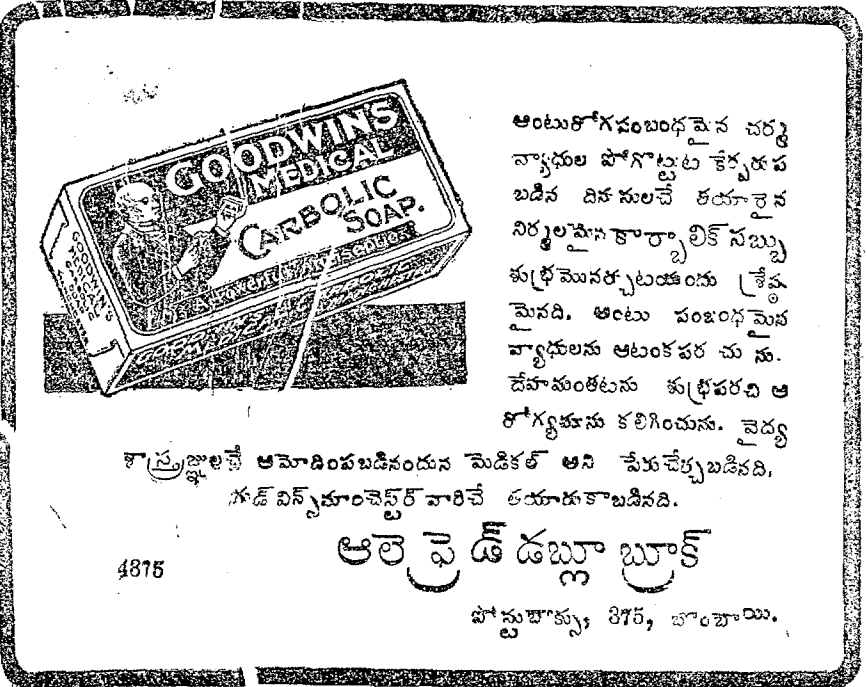 GOODWIN'S
MEDICAL
CARBOLIC
SOAP.
GOODWIN'S
అంటురోగసంబంధమైన చర్మ
వ్యాధుల పోగొట్టుట కేర్పరుప
బడిన దినసులచే తయారైన
నిర్మలమైన కార్బాలిక్ సబ్బు
శుభ్రమొనర్చుటయందు శ్రేష్ఠ
మైనది. అంటు సంబంధమైన
వ్యాధులను ఆటంకపర చు ను.
దేహమంతటను శుభ్రపరచి ఆ
రోగ్యమును కలిగించును. వైద్య
శాస్త్రజ్ఞులచే ఆమోదింపబడినందున మెడికల్ అని పేరుచేర్చబడినది,
గుడ్ విన్స్ మాంచెస్టర్ వారిచే తయారుకాబడినది.
ఆలెఫ్రెడ్ డబ్లూ బ్రూక్
4375
పోస్టుబాక్సు, 375, బొంబాయి.